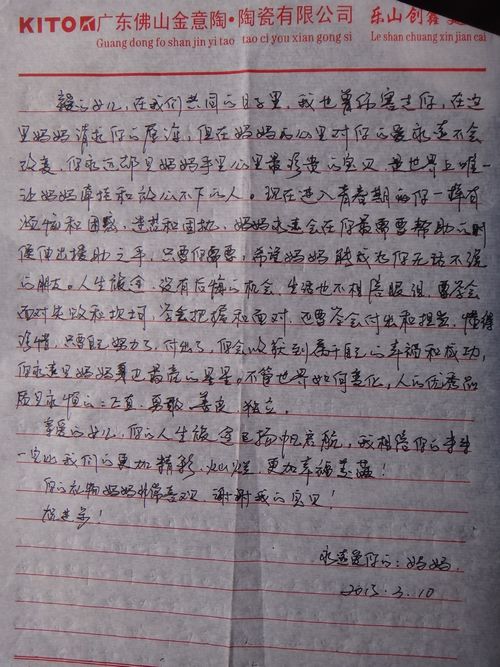 KITO 广东佛山金意陶·陶瓷有限公司 乐山创鑫
Guang dong fo shan jin yi tao tao ci you xian gong si Le shan chuang xin jian cai
亲爱的女儿,在我们共同的日子里,我也曾伤害过你,在这
里妈妈请求你的原谅,但在妈妈的心里对你的爱永远不会
改变,你永远都是妈妈手里心里最珍贵的宝贝,是世界上唯一
让妈妈牵挂和放心不下的人。现在进入青春期的你一样有
烦恼和困惑,迷茫和困扰,妈妈永远会在你最需要帮助的时
候伸出援助之手,只要你需要,希望妈妈能成为你无话不说
的朋友。人生旅途,没有后悔的机会,生活也不相信眼泪,要学会
面对失败和坎坷,学会把握和面对,还要学会付出和担当,懂得
珍惜,只要自己努力了,付出了,你会收获到属于自己的幸福和成功,
你永远是妈妈身边最亮的星星,不管世界如何变化,人的优秀品
质是永恒的:正直,勇敢,善良,独立。
亲爱的女儿,你的人生旅途已扬帆启航,我相信你的未来
一定比我们的更加精彩,灿烂,更加幸福美满!
你的礼物妈妈非常喜欢,谢谢我的宝贝!
祝进步!
永远爱你的:妈妈
2015.3.10